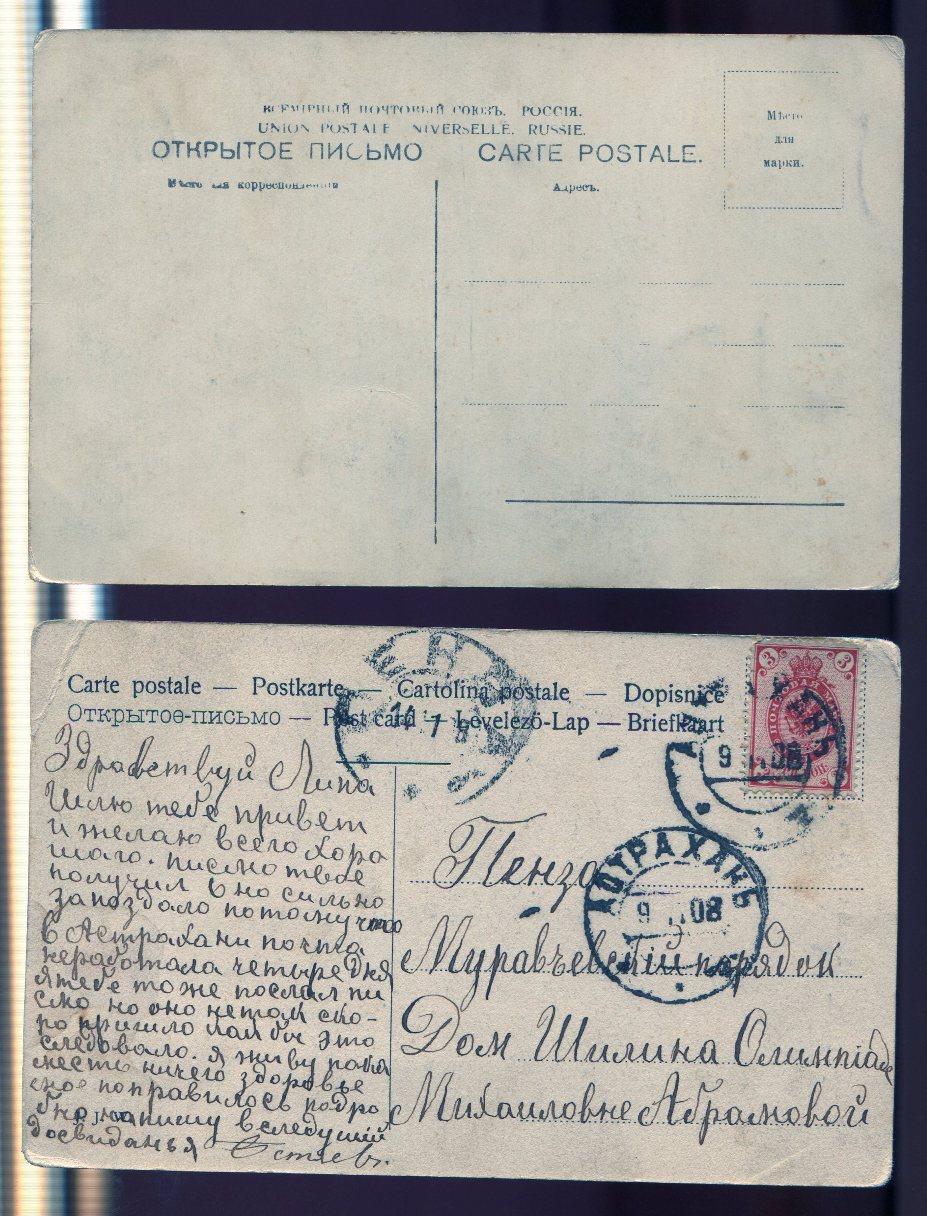 ВСЕМІРНЫЙ ПОЧТОВЫЙ СОЮЗЪ. РОССІЯ.
UNION POSTALE NIVERSELLE. RUSSIE.
ОТКРЫТОЕ ПИСЬМО CARTE POSTALE.
Мѣсто для корреспонденціи
Адресъ.
Мѣсто
для
марки.
Carte postale — Postkarte — Cartolina postale — Dopisnice
Открытое-письмо — Post card — Levelező-Lap — Briefkaart
3 3
ПОЧТОВАЯ
9 08
Здравствуй Липа
Шлю тебе привет
и желаю всего хоро
шаго. писмо твое
получил но сильно
запоздало потому что
в Астрахани почта
неработала четыре дня
я тебе тоже послал пи
смо но оно нетак ско-
ро пришло как бы это
следовало. я живу
ничего здоровье
поправилось подро
бно напишу вследущий
досвиданья
Пенза
АСТРАХАНЬ
9 08
Муравьевский порядок
Дом Шилина Олимпіаде
Михаиловне Абрамовой